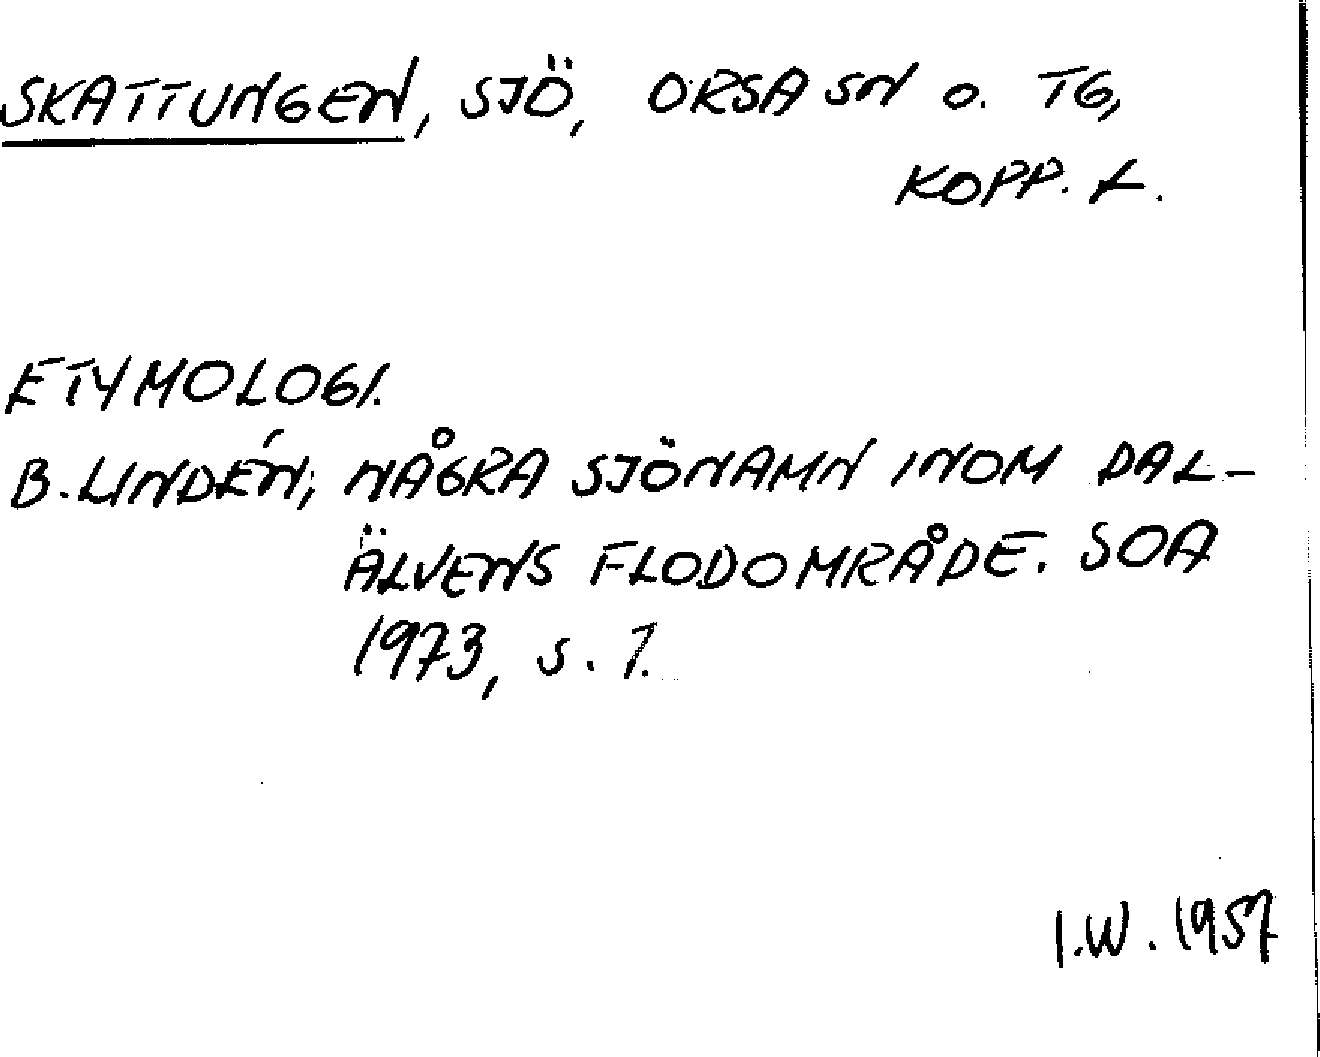 SKATTUNGEN, SJÖ, ORSA SN o. TG,
KOPP. L.
ETYMOLOGI.
B. LINDÉN; NÅGRA SJÖNAMN INOM DAL-
ÄLVENS FLODOMRÅDE. SOA
1973, s. 7.
I.W. 1957